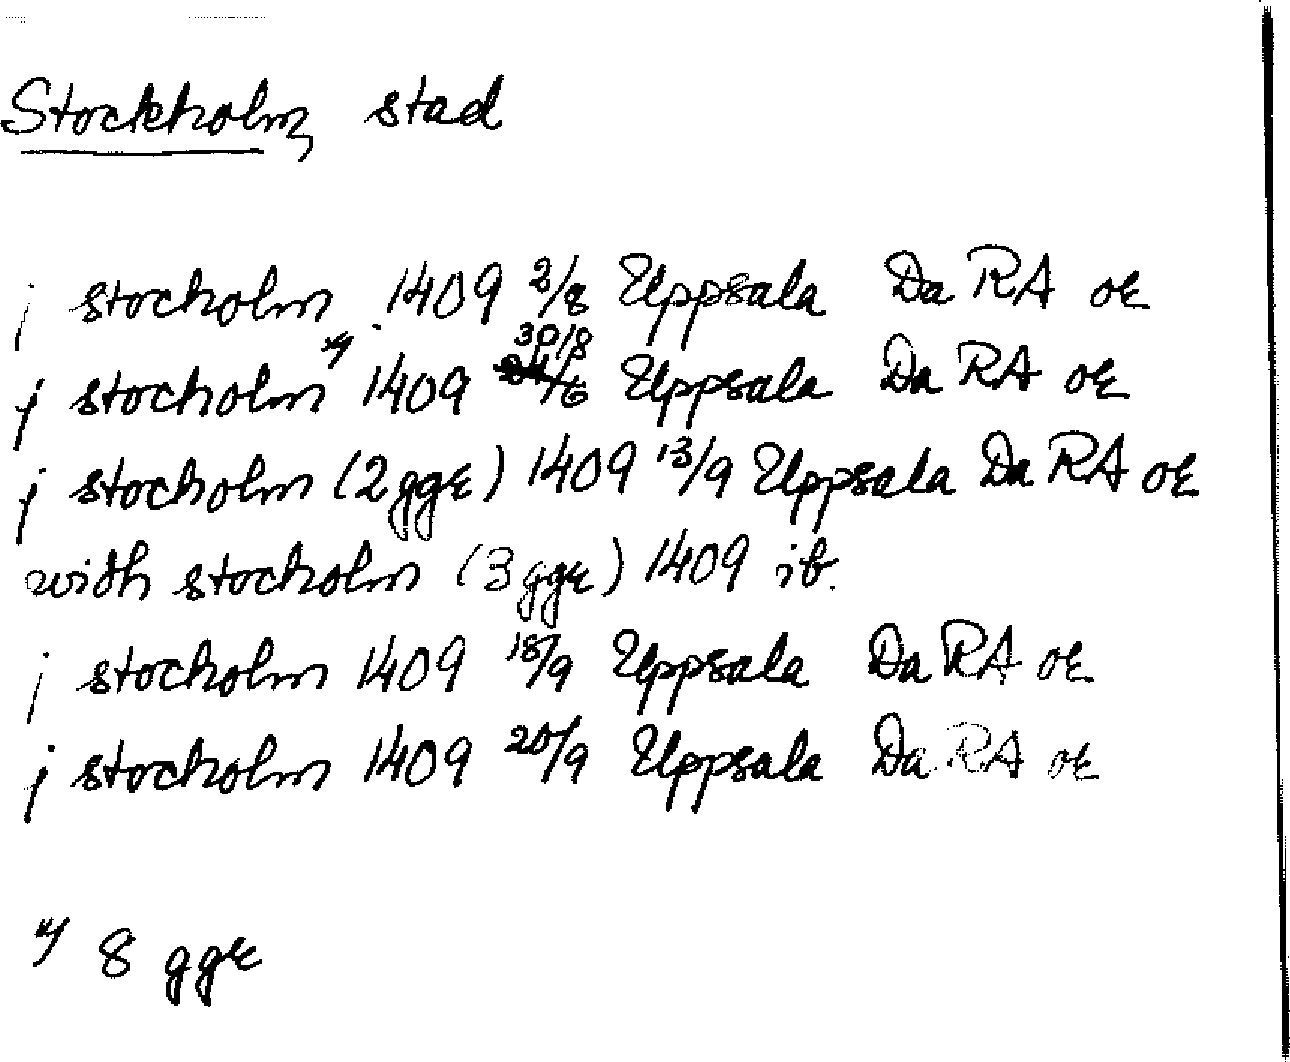 Stockholm, stad
j stocholm 1409 2/8 Uppsala Da RA or
j stocholm x) 1409 30/8 Uppsala Da RA or
j stocholm (2 ggr) 1409 13/9 Uppsala Da RA or
widh stocholm (3 ggr) 1409 ib.
j stocholm 1409 18/9 Uppsala Da RA or
j stocholm 1409 20/9 Uppsala Da RA or
x) 8 ggr